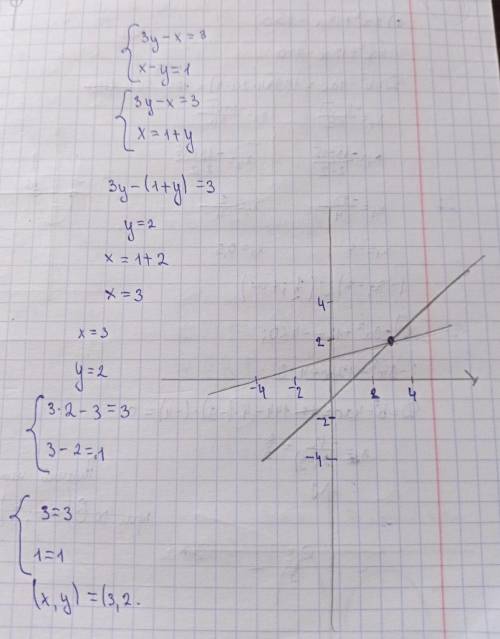 {3y-x=3
x-y=1
{3y-x=3
x=1+y
3y-(1+y)=3
y=2
x=1+2
x=3
x=3
y=2
{3·2-3=3
3-2=1
{3=3
1=1
(x,y)=(3,2.
4
2
-4 -2 2 4
-2
-4